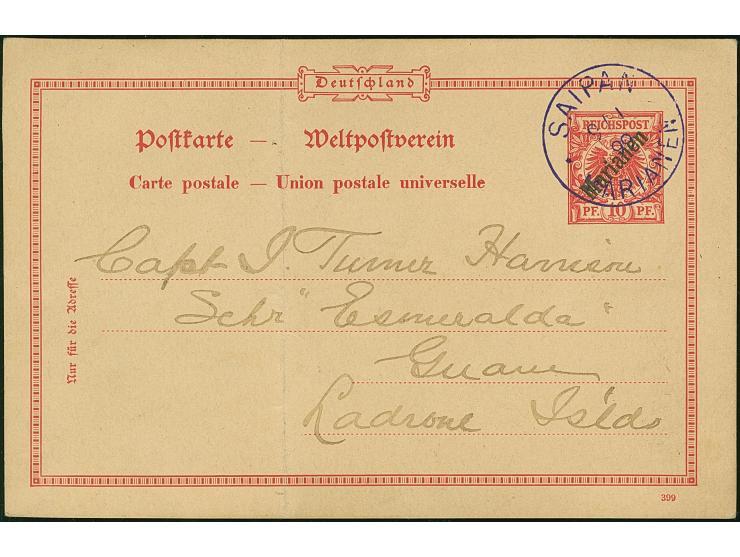 Deutschland
SAIPAN
MARIANEN
99
REICHSPOST
Marianen
PF. 10 PF.
Postkarte — Weltpostverein
Carte postale — Union postale universelle
Nur für die Adresse
Capt J. Turner Harrison
Schr "Esmeralda"
Guam
Ladrone Islds
399